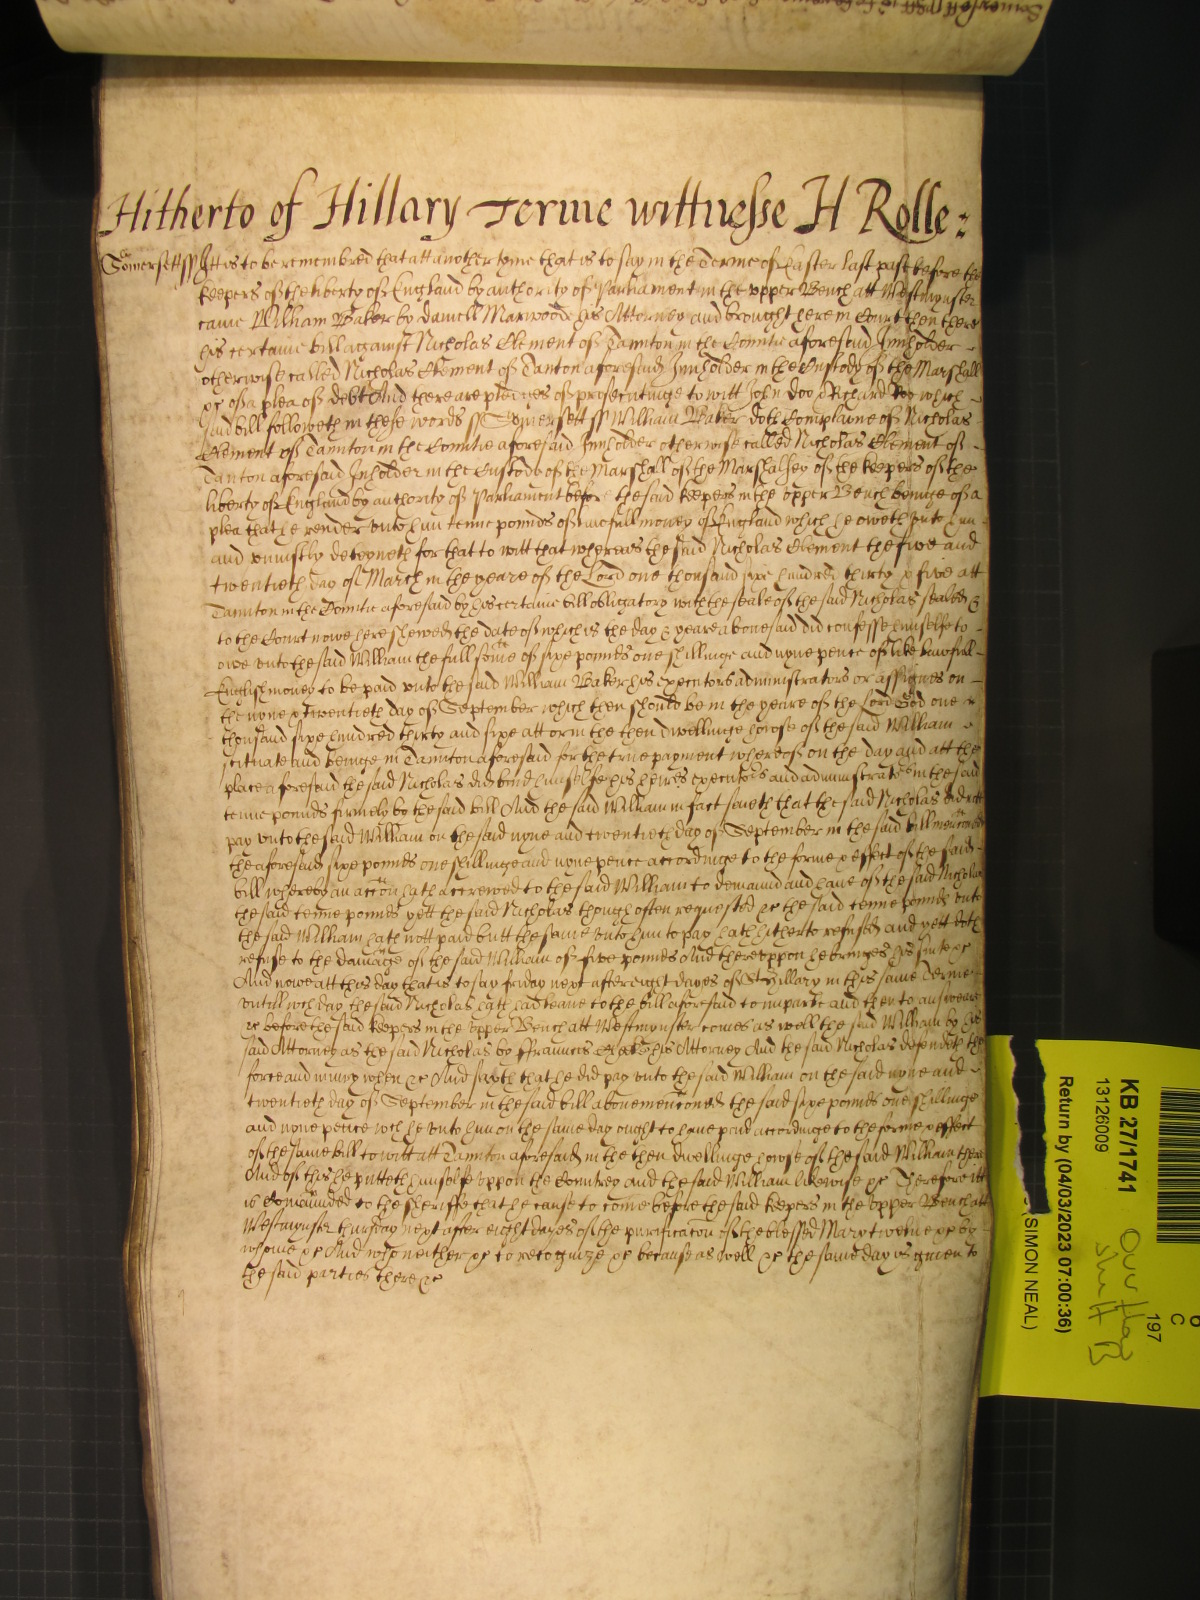 Hitherto of Hillary Terme wittnesse H Rolle:
Somersett ss Itt is to be remembred that att another tyme that is to say in the Terme of Easter last past before the
keepers of the liberty of England by authority of Parliament in the upper Bench att Westmynster
came William Baker by Daniell Marwood his Attorney and brought here in Court then there
his certaine bill against Nicholas Clement of Taunton in the Countie aforesaid Innholder
otherwise called Nicholas Clement of Tanton aforesaid Innholder in the Custody of the Marshall
&c of a plea of debt And there are pledges of prosecutinge to witt John Doo & Richard Roo which
said bill followeth in these words ss Somersett ss William Baker doth Complaine of Nicholas
Clement of Taunton in the Countie aforesaid Innholder otherwise called Nicholas Clement of
Tanton aforesaid Inholder in the Custody of the Marshall of the Marshalsey of the keepers of the
liberty of England by authority of Parliament before the said keepers in the upper Bench beinge of a
plea that he render unto him tenne pounds of lawfull money of England which he oweth unto him
and uniustly deteyneth for that to witt that whereas the said Nicholas Clement the five and
twentieth day of March in the yeare of the Lord one thousand sixe hundred thirty & five att
Taunton in the Countie aforesaid by his certaine bill obligatory with the seale of the said Nicholas sealed &
to the Court nowe here shewed the date of which is the day & yeare abovesaid did confesse himselfe to
owe unto the said William the full some of sixe pounds one shillinge and nyne pence of like lawfull
English money to be paid unto the said William Baker his executors administrators or assignes on
the nyne & twentieth day of September which then should be in the yeare of the Lord God one
thousand sixe hundred thirty and sixe att or in the then dwellinge howse of the said William
scituate and beinge in Taunton aforesaid for the true payment whereof on the day and att the
place aforesaid the said Nicholas did bind himselfe his heires executors and administrators in the said
tenne pounds firmely by the said bill And the said William in fact saieth that the said Nicholas did nott
pay unto the said William on the said nyne and twentieth day of September in the said bill menconed
the aforesaid sixe pounds one shillinge and nyne pence accordinge to the forme & effect of the said
bill whereby an accon hath accrewed to the said William to demaund and have of the said Nicholas
the said tenne pounds yett the said Nicholas though often requested &c the said tenne pounds unto
the said William hath nott paid butt the same unto him to pay hath hitherto refused and yett doth
refuse to the damage of the said William of five pounds And thereuppon he bringes his suite &c
And nowe att this day that is to say fryday next after eight dayes of St Hillary in this same Terme
untill wch day the said Nicholas hath had leave to the bill aforesaid to imparle and then to answeare
&c before the said keepers in the upper Bench att Westmynster comes as well the said William by his
said Attorney as the said Nicholas by ffrauncis his Attorney And the said Nicholas defendeth the
force and iniury when &c And saieth that he did pay unto the said William on the said nyne and
twentieth day of September in the said bill abovemenconed the said sixe pounds one shillinge
and nyne pence wch he unto him on the same day ought to have paid accordinge to the forme & effect
of the same bill to witt att Taunton aforesaid in the then dwellinge howse of the said William there
And of this he putteth himselfe uppon the Countrey and the said William likewise &c Therefore itt
is Comaunded to the Sheriffe that he cause to come before the said keepers in the upper Bench att
Westmynster thursday next after eight dayes of the purificacon of the blessed Mary twelve &c by
whome &c And who neither &c to recognize &c because as well &c the same day is given to
the said parties there &c
KB 27/1741
13126009
Return by (04/03/2023 07:00:36)
(SIMON NEAL)
197
C
6